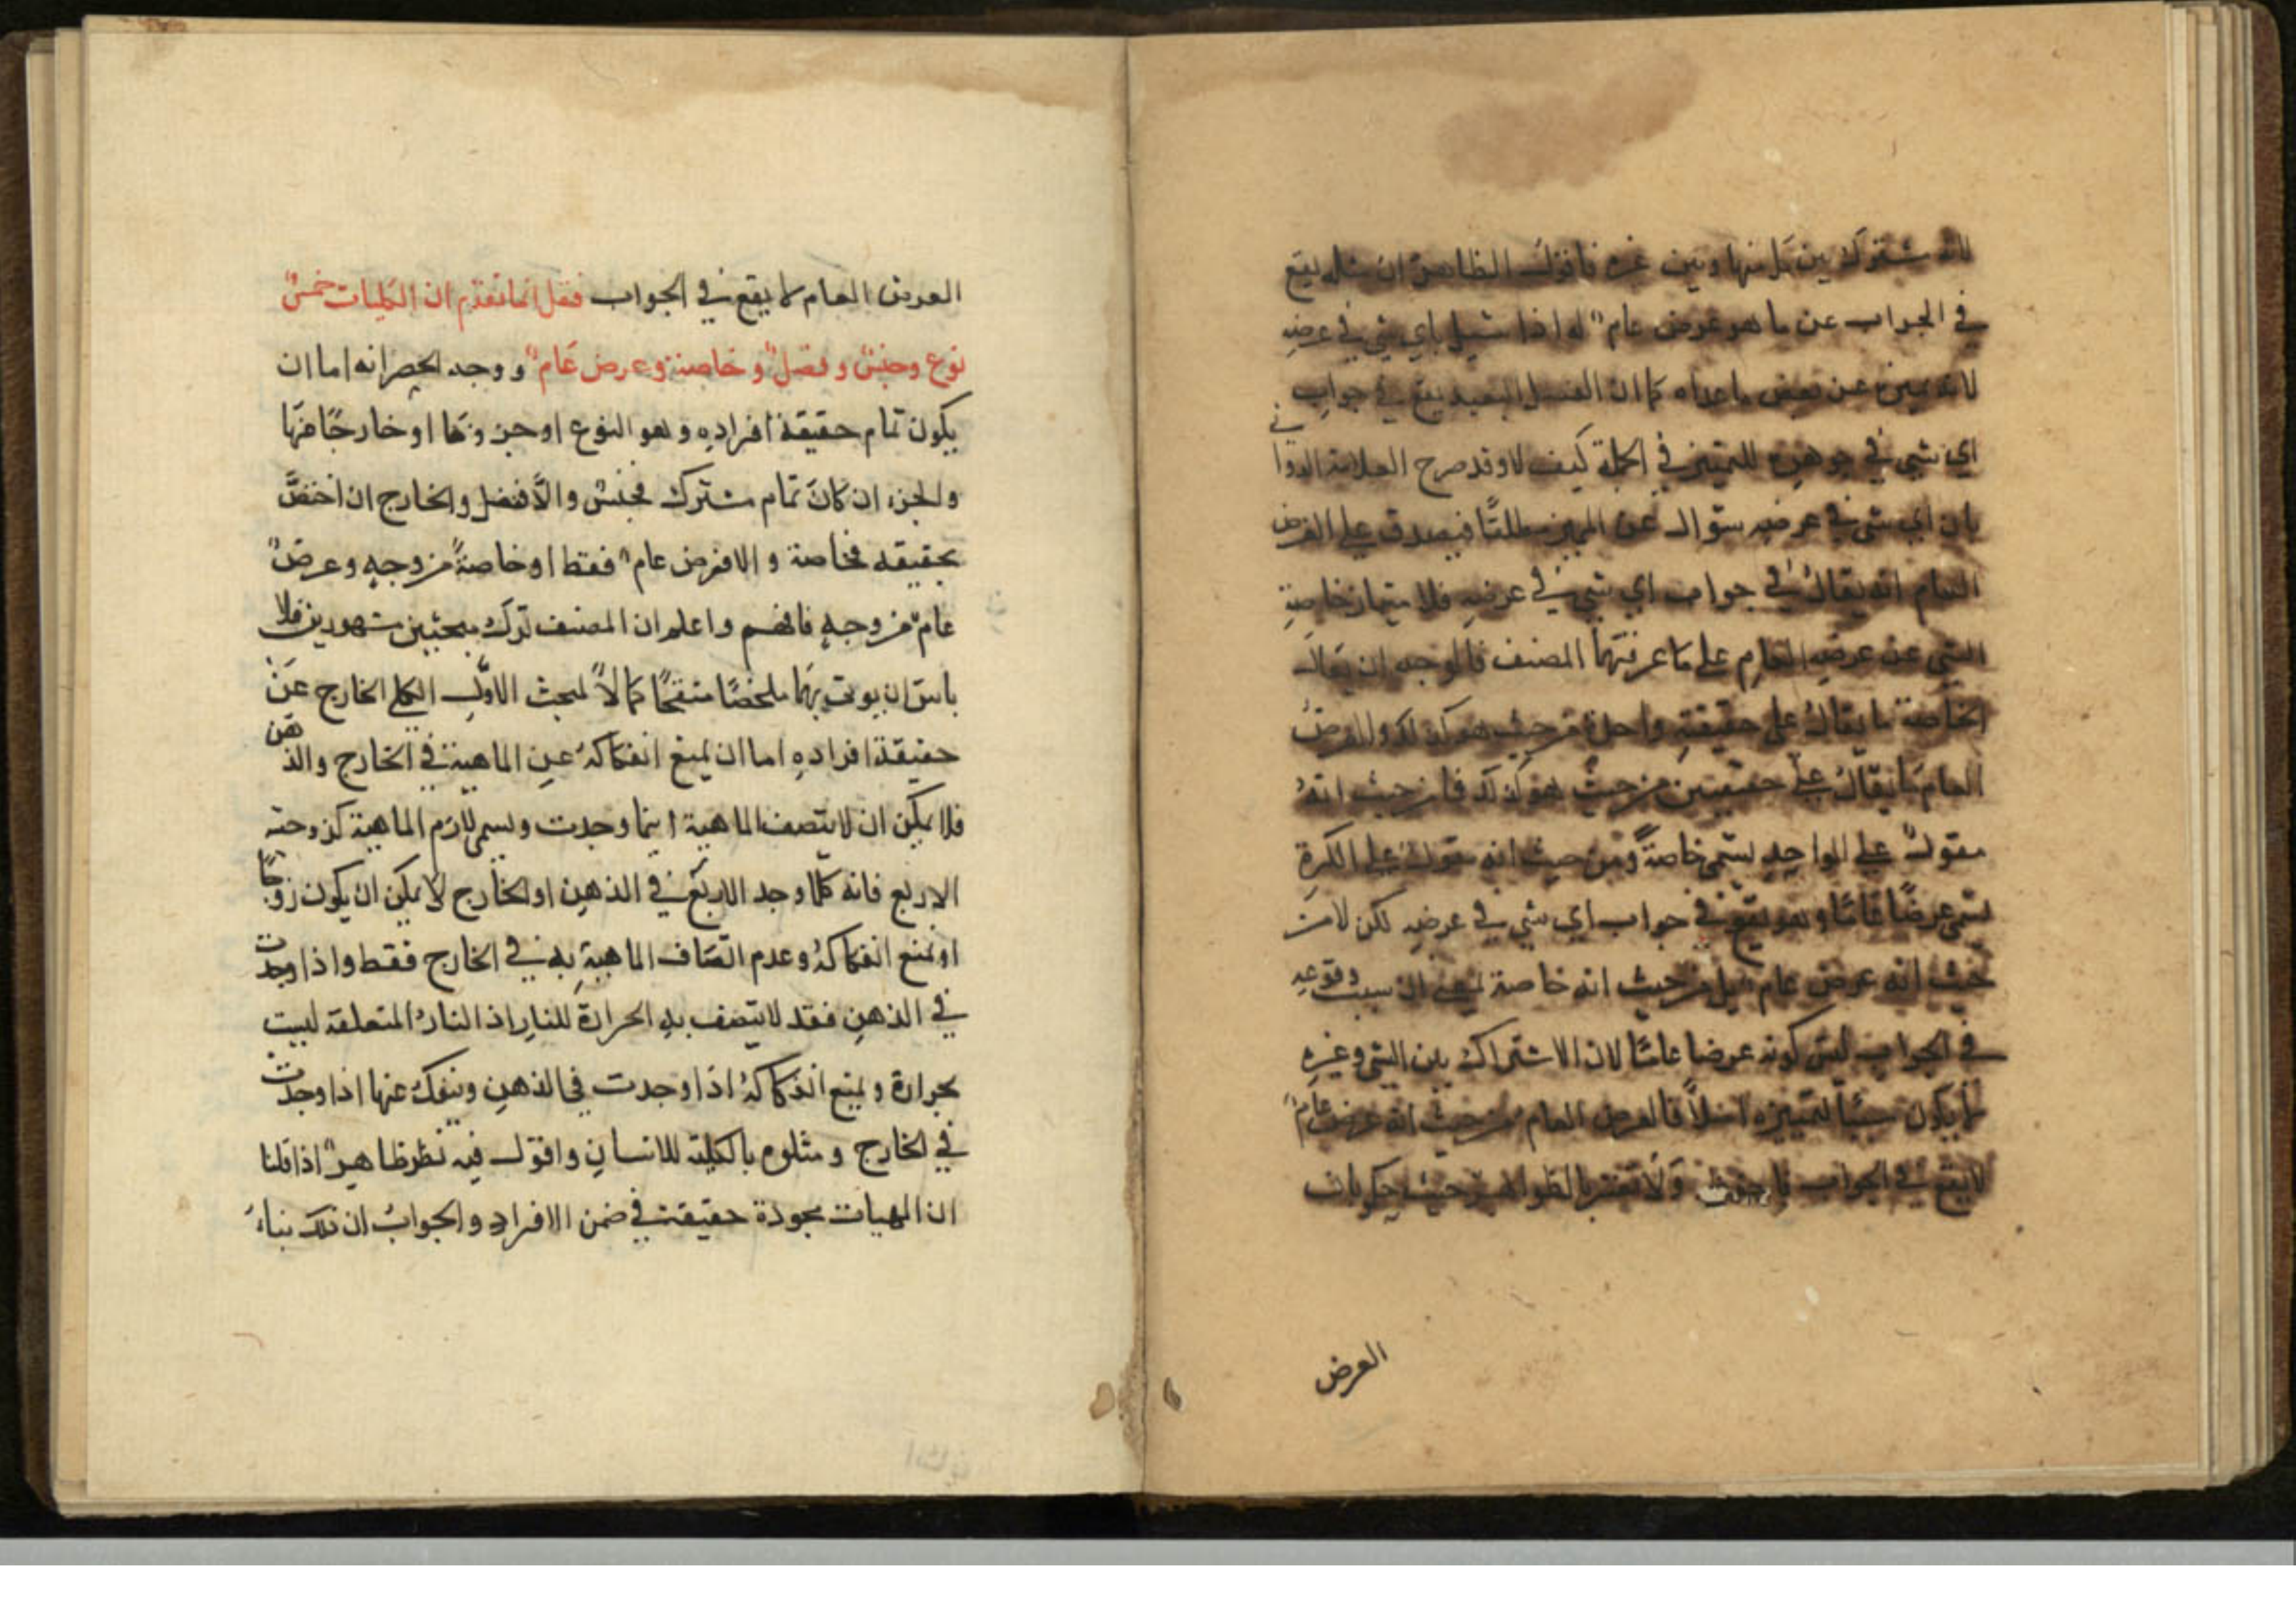 لانه مشترك بين كل منها وبين غيره فاقول الظاهر ان مثله يقع
في الجواب عن ما هو عرض عام له اذا سئل باي شئ في عرضه
لانه يميز عن بعض ما عداه كما ان الفصل البعيد يقع في جواب
اي شئ في جوهره للتمييز في الجملة كيف لا وقد صرح العلامة الدواني
بان اي شئ في عرضه سؤال عن المميز مطلقًا فيصدق على العرض
العام انه يقال في جواب اي شئ في عرضه فلا متماز خاصة
الشئ عن عرضه العام على ما عرفتهما المصنف فالوجه ان يقال
الخاصة ما يقال على حقيقةٍ واحدة من حيث هو كذلك والعرض
العام ما يقال على حقيقتين من حيث هو كذلك فان حيث انه
مقول على الواحد يسمى خاصةً ومن حيث انه مقول على الكثرة
يسمى عرضًا عامًا وهو يقع في جواب اي شئ في عرضه لكن لا من
حيث انه عرض عام بل من حيث انه خاصة لمعنى ان سبب وقوعه
في الجواب ليس كونه عرضا عامًا لان الاشتراك بين الشئ وغيره
لا يكون سببًا لتمييزه اصلًا فالعرض العام من حيث انه عرض عام
لا يقع في الجواب ولا تغتر بالظواهر حيث حكم بان
العرض
العرض العام لا يقع في الجواب فقل انما تقدم ان الكليات خمسٌ
نوع وجنسٌ وفصلٌ وخاصة وعرض عَامٌ ووجه الحصر انه اما ان
يكون تمام حقيقة افرادِهِ وهو النوع او جزءها او خارجًا عنها
والجزء ان كانَ تمام مشترك فجنس والّا ففصل والخارج ان اختصَّ
بحقيقة فخاصة والا فعرض عام فقط او خاصةً من وجهٍ وعرضٌ
عامٌ من وجهٍ فافهم واعلم ان المصنف ترك مبحثين مشهورين فلا
باس ان يوتى بهَما ملخصًا منقحًا كمالًا لمبحث الاوّلِ الكلي الخارج عَنْ
حقيقة افرادهِ اما ان يمنع انفكاكهُ عنِ الماهية في الخارج والذهن
فلا يمكن ان لا يتصف الماهية اينما وجدت ويسمى لازم الماهية كزوجته
الاربع فانه كلما وجد الاربَع في الذهنِ او الخارج لا يمكن ان يكون زوجًا
او يمنع انفكاكهُ وعدم اتصَاف الماهيةِ بِهِ في الخارج فقط واذا وجدت
في الذهنِ فقد لا يتصف بهِ الحرارة للنارِ اذ النارُ المتعلقة ليست
بحرارة ويمنع انفكاكهُ اذا وجدت في الذهنِ وينفكُ عنها اذا وجدت
في الخارج ومثلوه بالكلية للانسانِ واقول فيه نظر ظاهرٌ اذا قلنا
ان المهيات مجودة حقيقة في ضمن الافرادِ والجوابُ ان ذلك بناءً